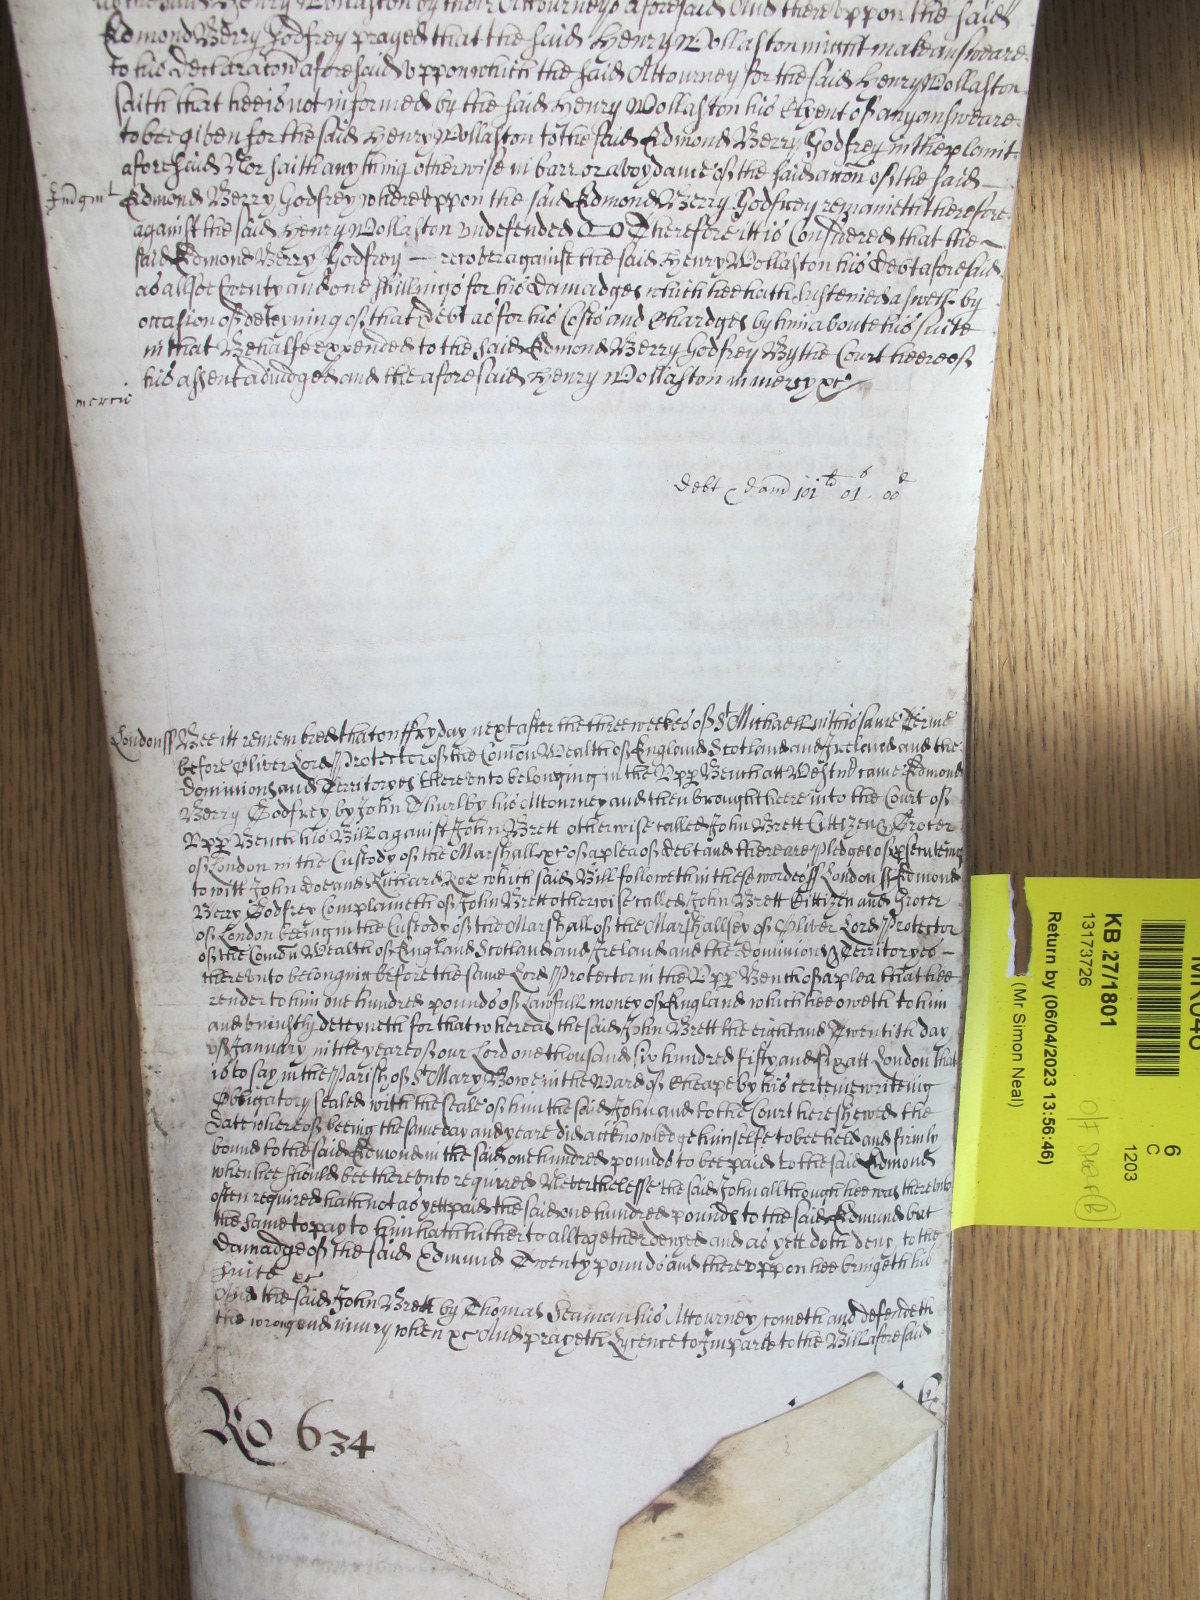 the said Henry Wollaston by their Attourneys aforesaid And thereuppon the said
Edmond Berry Godfrey prayed that the said Henry Wollaston might make answeare
to his Declaracon aforesaid uppon which the said Attourney for the said Henry Wollaston
saith that hee is not informed by the said Henry Wollaston his Clyent of any answeare
to bee given for the said Henry Wollaston to the said Edmond Berry Godfrey in the plaint
aforesaid Nor saith any thing otherwise in barr or avoydance of the said accon of the said
Judgmt Edmond Berry Godfrey whereuppon the said Edmond Berry Godfrey remaineth therefore
against the said Henry Wollaston undefended Therefore itt is Considered that the
said Edmond Berry Godfrey recover against the said Henry Wollaston his Debt aforesaid
as allsoe twenty and one shillings for his damadges which hee hath susteined aswell by
occasion of deteyning of that Debt as for his Costs and Chardges by him about his suite
in that Behalfe expended to the said Edmond Berry Godfrey By the Court heere of
his assent adiudged and the aforesaid Henry Wollaston in mercy &c
mercie
Debt & dam 101li 01s 00d
London ss Bee itt remembred that on ffryday next after the three weekes of St Michaell in this same Terme
before Oliver Lord Protector of the Comon Wealth of England Scotland and Ireland and the
dominions and Territoryes thereunto belonging in the Upper Bench att Westmr came Edmond
Berry Godfrey by John Thurlby his Attourney and then brought heere into the Court of
Upper Bench his Bill against John Brett otherwise called John Brett Cittizen & Grocer
of London in the Custody of the Marshall &c of a plea of debt and there are Pledges of prosecuteing
to witt John Doe and Richard Roe which said Bill followeth in these wordes ss London ss Edmond
Berry Godfrey Complaineth of John Brett otherwise called John Brett Cittizen and Grocer
of London beeing in the Custody of the Marshall of the Marshallsey of Oliver Lord Protector
of the Comon Wealth of England Scotland and Ireland and the dominions & Territoryes
thereunto belonging before the same Lord Protector in the Upper Bench of a plea that hee
render to him one hundred pounds of Lawfull money of England which hee oweth to him
and uniustly deteyneth for that whereas the said John Brett the eight and Twentith day
of January in the yeare of our Lord one thousand six hundred fifty and six att London that
is to say in the Parish of St Mary Bowe in the Ward of Cheape by his certeine writeing
Obligatory sealed with the seale of him the said John and to the Court here shewed the
date whereof beeing the same day and yeare did acknowledge himselfe to bee held and firmly
bound to the said Edmond in the said one hundred pounds to bee paid to the said Edmond
when hee should bee thereunto required Neverthelesse the said John allthough hee was thereunto
often required hath not as yett paid the said one hundred pounds to the said Edmund but
the same to pay to him hath hitherto alltogether denyed and as yett doth deny to the
damadge of the said Edmund Twenty pounds and thereuppon hee bringeth his
suite &c
And the said John Brett by Thomas Seaman his Attourney cometh and defendeth
the wrong and iniury when &c And prayeth Lycence to Imparle to the Bill aforesaid
Ro 634
KB 27/1801
13173726
Return by (06/04/2023 13:56:46)
(Mr Simon Neal)
6
C
1203